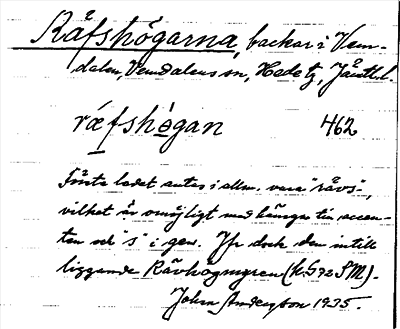 Räfshögarna, backar i Vem-
dalen, Vemdalens sn, Hede tg, Jämtl.
ræfshögan 462
Första ledet antas i allm. vara "rävs",
vilket är omöjligt med hänsyn till accen-
ten och "s" i gen. Jfr dock den intill
liggande Rävhögmyren (KG 72 SM).
John Andersson 1935.